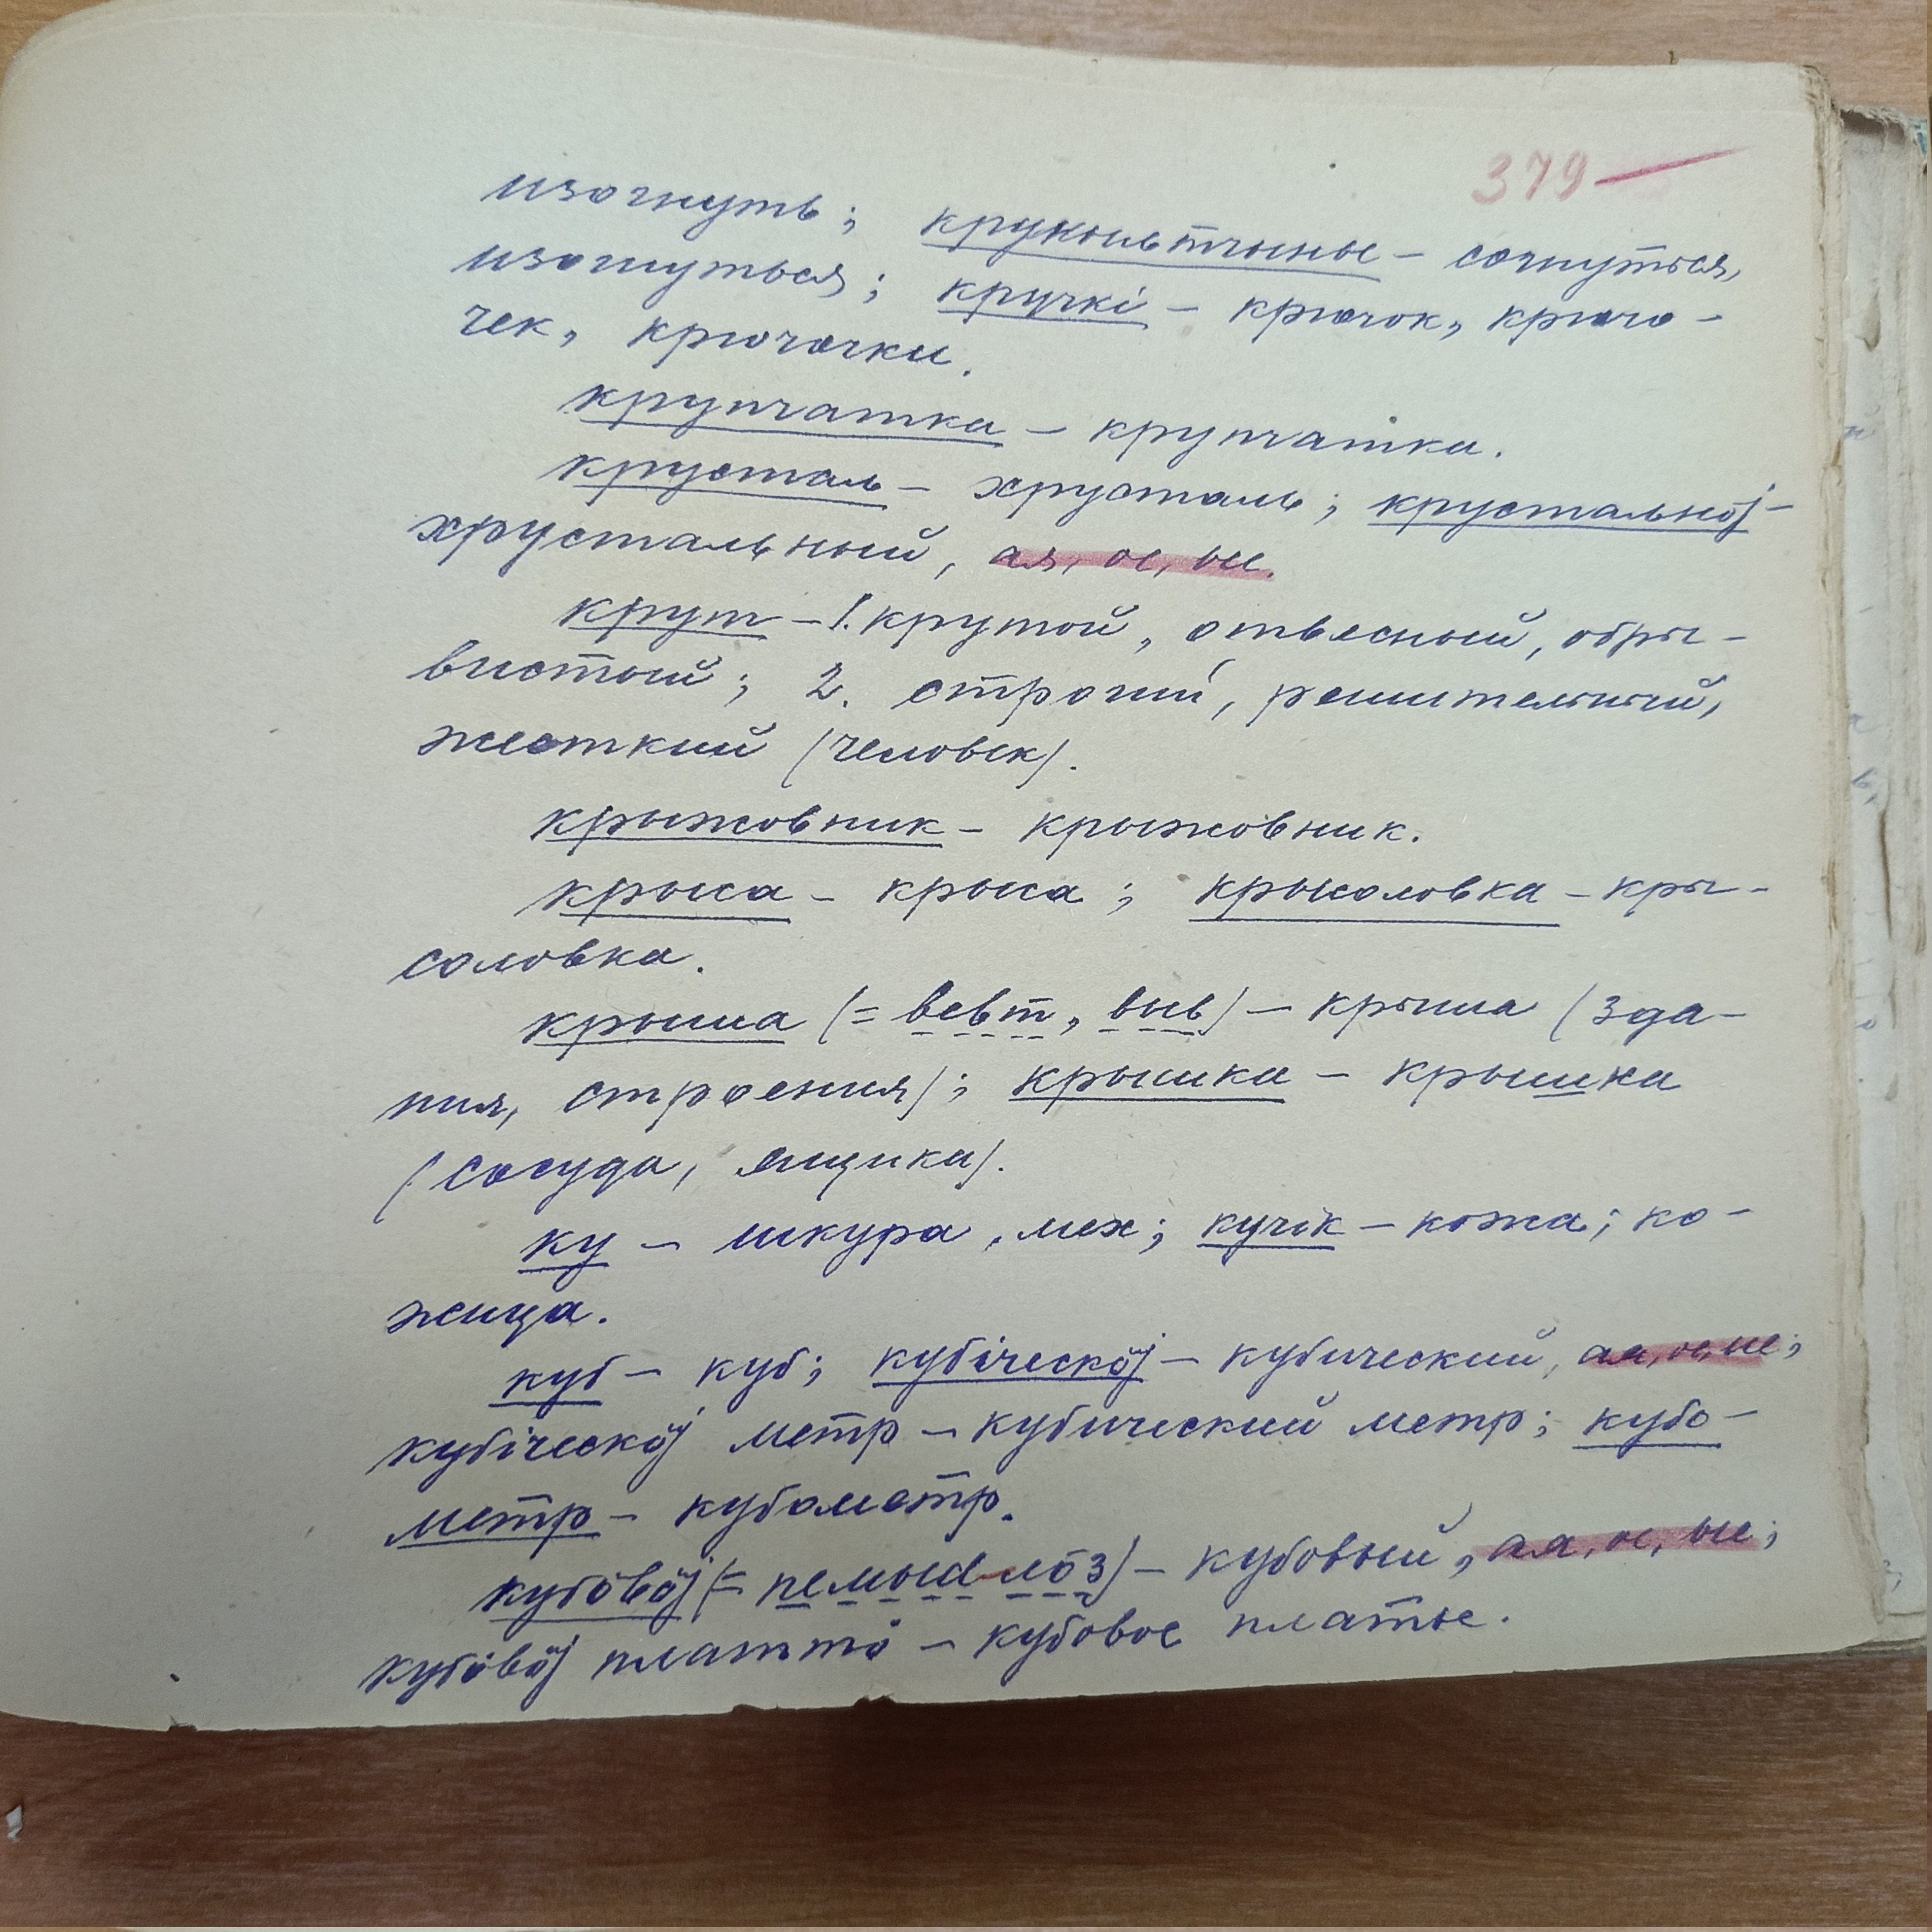 379
изогнуть; крукыльтчыны – согнуться,
изогнуться; кручкі – крючок, крючо-
чек, крючочки.
крупчатка – крупчатка.
крусталь – хрусталь; крустальнöј –
хрустальный, ая, ое, ые.
крут – 1. крутой, отвесный, обры-
вистый; 2. строгий, решительный,
жесткий (человек).
крыжовник – крыжовник.
крыса – крыса; крысоловка – кры-
соловка.
крыша (= вевт, выв) – крыша (зда-
ния, строения); крышка – крышка
(сосуда, ящика).
ку – шкура, мех; кучік – кожа; ко-
жица.
куб – куб; кубіческöј – кубический, ая, ое, ие;
кубіческöј метр – кубический метр; кубо-
метр – кубометр.
кубöвöј (= пемыд лöз) – кубовый, ая, ое, ые;
кубöвöј платтö – кубовое платье.